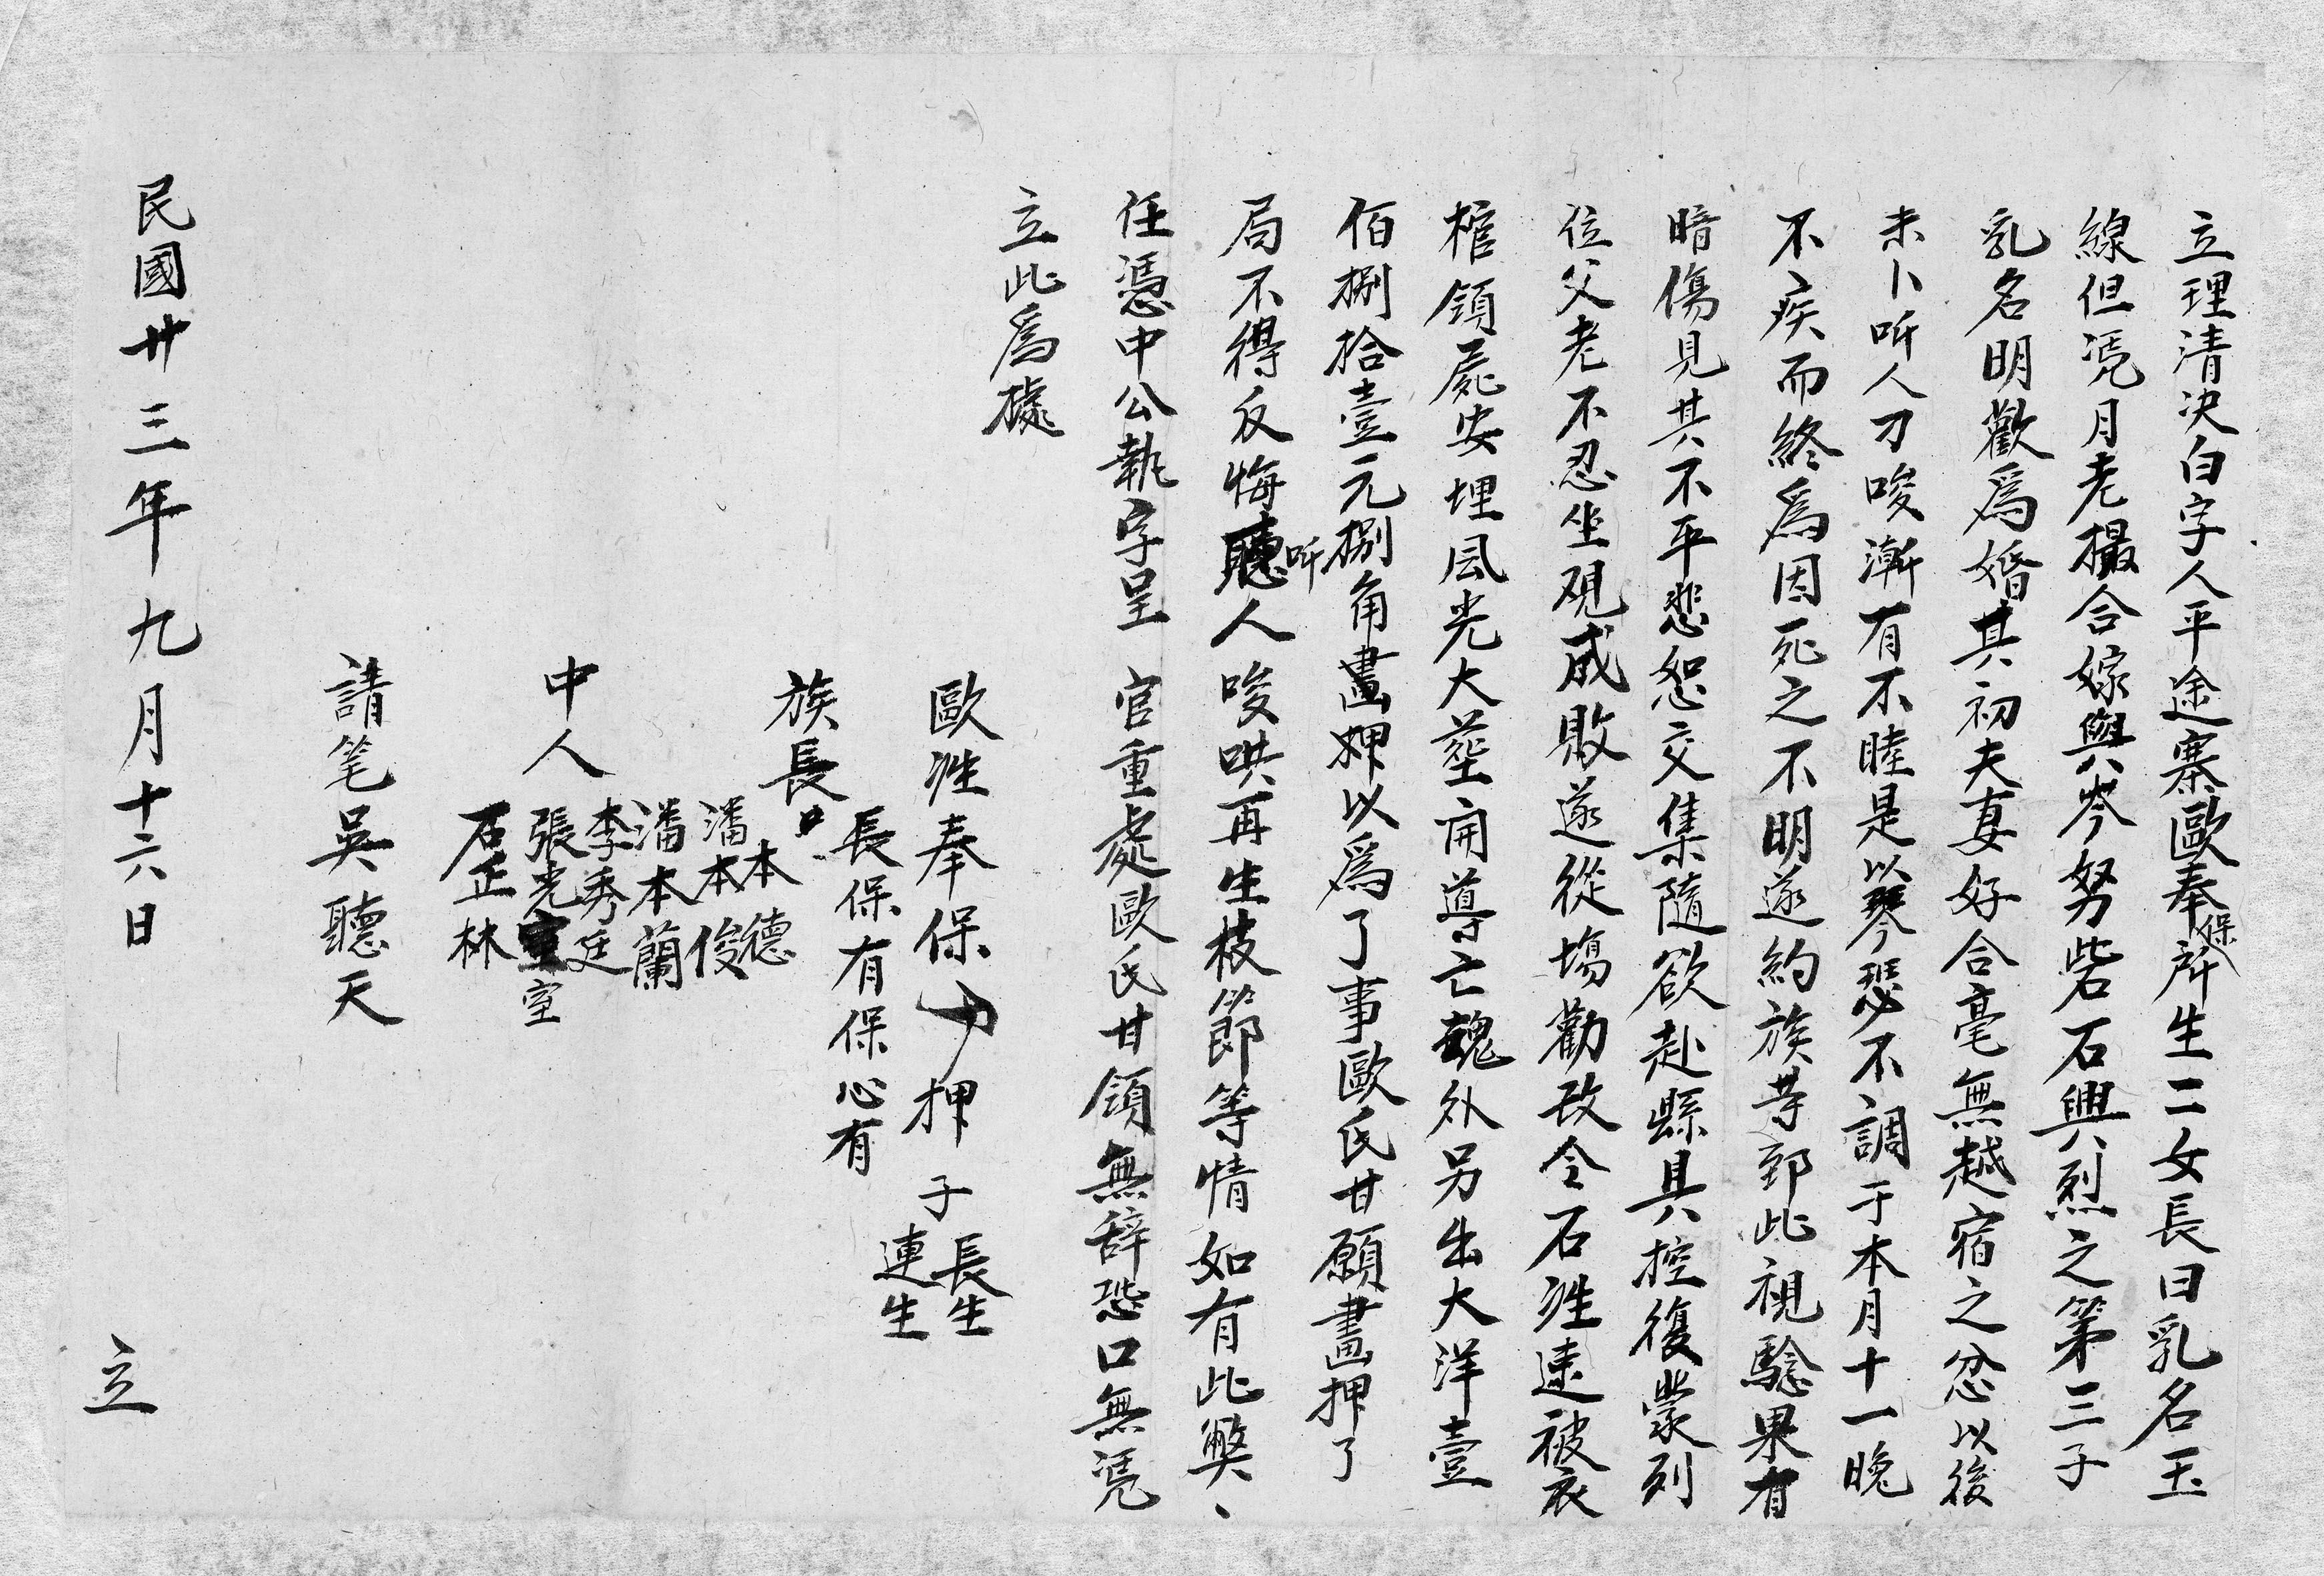 立理清決白字人平途寨歐奉保所生二女長曰乳名玉
線但凴月老撮合嫁與岑努砦石興烈之第三子
乳名明歡爲婚其初夫妻好合毫無越宿之忿以後
未卜听人刁唆漸有不睦是以琴瑟不調于本月十一晚
不疾而終爲因死之不明遂約族等到此視驗果有
暗傷見其不平悲怨交集隨欲赴縣具控復蒙列
位父老不忍坐視成敗遂從塲勸改令石姓速被衣
棺領屍安埋風光大塟開導亡魂外另出大洋壹
佰捌拾壹元捌角畫押以爲了事歐氏甘願畫押了
局不得反悔听人唆哄再生枝節等情如有此獘、
任憑中公執字呈 官重處歐氏甘領無辞恐口無凴
立此爲據
歐姓奉保 押 子 長生 連生
族長 長保有保心有
中人 潘本德 潘本俊 潘本蘭 李秀廷 張光室 石正林
請笔吳聽天
民國卄三年九月十六日 立